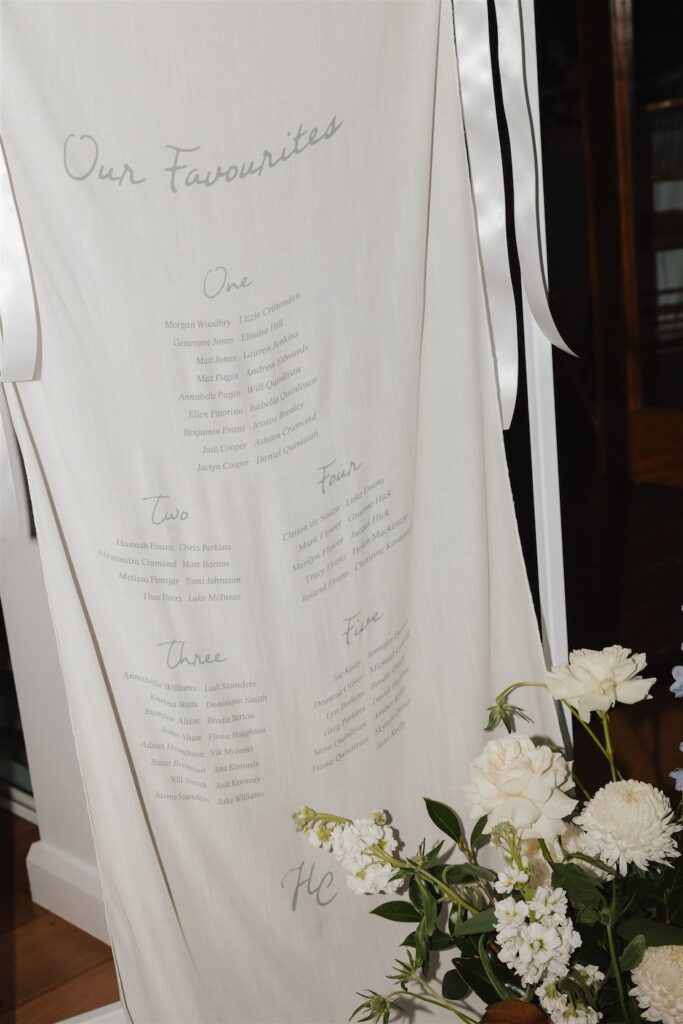 Our Favourites
One
Morgan Woodbry Lizzie Crittenden
Genevieve Jones Elouise Hill
Matt Jones Lauren Jenkins
Matt Pugin Andrew Edwards
Annabelle Pugin Will Quinlivan
Ellen Pittorino Isabella Quinlivan
Benjamin Evans Jessica Brealey
Josh Cooper Ashton Cramond
Jaclyn Cooper Daniel Quinlivan
Two
Hannah Evans Chris Perkins
Alexandra Cramond Matt Barton
Melissa Flentjar Tomi Johnston
Thea Evers Luke McInnes
Three
Annabelle Williams Leah Saunders
Karina Watts Dominique Smith
Jasmine Alison Brodie Barton
John Shaw Fiona Houghton
Adrian Houghton Vik McInnes
Xavier Brennan Ana Kennedy
Will Smith Josh Kennedy
Jamie Saunders Jake Williams
Four
Cleiton de Souza Luke Evans
Mark Flower Graeme Hick
Marilyn Flower Jacqui Hick
Tracy Evans Helen Mackenzie
Roland Evans Christine
Five
Joe Keely Jennifer
Deanna Oliver Michael
Lyn Perkins Brodie Oliver
Greg Perkins David Perkins
Steve Quinlivan Amber
Fiona Quinlivan Skylah Oliver
Jane Keely
HC